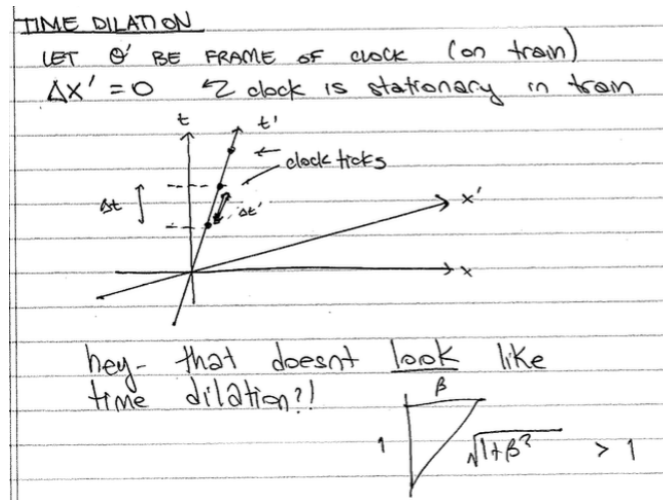 TIME DILATION
LET O' BE FRAME OF CLOCK (on train)
Δx' = 0 ← clock is stationary in train
t
t'
clock ticks
x'
Δt
Δt'
x
hey- that doesnt look like
time dilation?!
β
1
√1+β² > 1